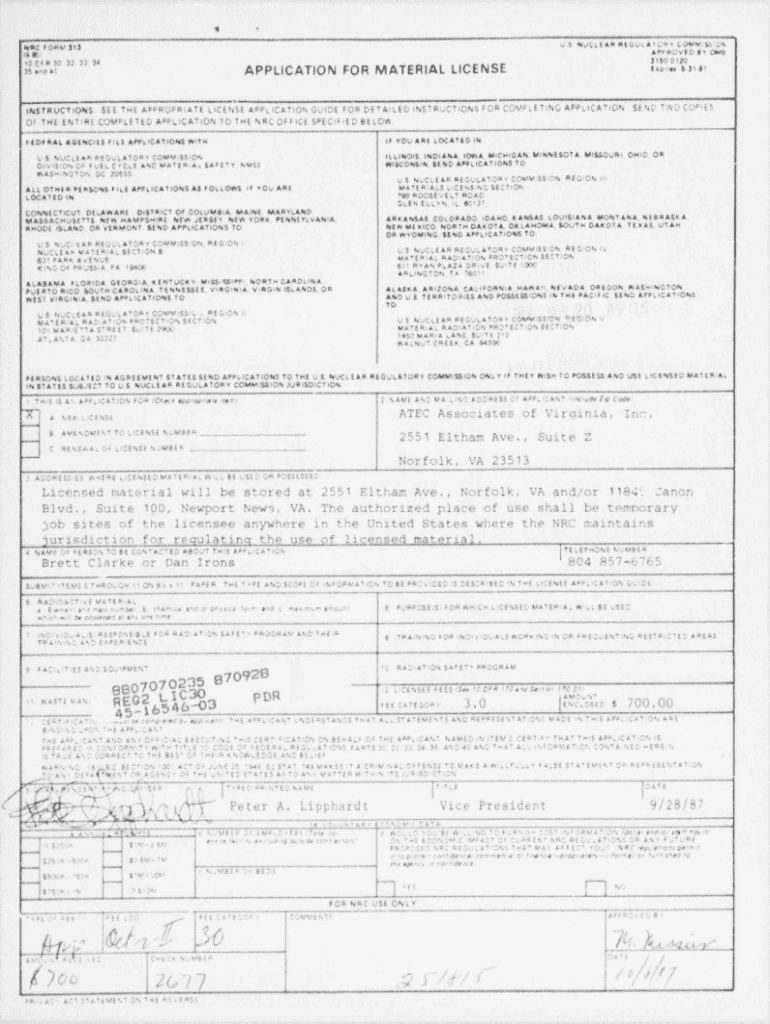 NRC FORM 313
10 CFR 30, 32, 33, 34
35 and 40
U.S. NUCLEAR REGULATORY COMMISSION
APPROVED BY OMB
3150-0120
Expires 5-31-87
APPLICATION FOR MATERIAL LICENSE
INSTRUCTIONS: SEE THE APPROPRIATE LICENSE APPLICATION GUIDE FOR DETAILED INSTRUCTIONS FOR COMPLETING APPLICATION. SEND TWO COPIES
OF THE ENTIRE COMPLETED APPLICATION TO THE NRC OFFICE SPECIFIED BELOW.
FEDERAL AGENCIES FILE APPLICATIONS WITH
U.S. NUCLEAR REGULATORY COMMISSION
DIVISION OF FUEL CYCLE AND MATERIAL SAFETY, NMSS
WASHINGTON, DC 20555
ALL OTHER PERSONS FILE APPLICATIONS AS FOLLOWS, IF YOU ARE
LOCATED IN
CONNECTICUT, DELAWARE, DISTRICT OF COLUMBIA, MAINE, MARYLAND,
MASSACHUSETTS, NEW HAMPSHIRE, NEW JERSEY, NEW YORK, PENNSYLVANIA,
RHODE ISLAND, OR VERMONT, SEND APPLICATIONS TO
U.S. NUCLEAR REGULATORY COMMISSION, REGION I
NUCLEAR MATERIAL SECTION B
631 PARK AVENUE
KING OF PRUSSIA, PA 19406
ALABAMA, FLORIDA, GEORGIA, KENTUCKY, MISSISSIPPI, NORTH CAROLINA,
PUERTO RICO, SOUTH CAROLINA, TENNESSEE, VIRGINIA, VIRGIN ISLANDS, OR
WEST VIRGINIA, SEND APPLICATIONS TO
U.S. NUCLEAR REGULATORY COMMISSION, REGION II
MATERIAL RADIATION PROTECTION SECTION
101 MARIETTA STREET, SUITE 2900
ATLANTA, GA 30323
IF YOU ARE LOCATED IN
ILLINOIS, INDIANA, IOWA, MICHIGAN, MINNESOTA, MISSOURI, OHIO, OR
WISCONSIN, SEND APPLICATIONS TO
U.S. NUCLEAR REGULATORY COMMISSION, REGION III
MATERIALS LICENSING SECTION
799 ROOSEVELT ROAD
GLEN ELLYN, IL 60137
ARKANSAS, COLORADO, IDAHO, KANSAS, LOUISIANA, MONTANA, NEBRASKA,
NEW MEXICO, NORTH DAKOTA, OKLAHOMA, SOUTH DAKOTA, TEXAS, UTAH,
OR WYOMING, SEND APPLICATIONS TO
U.S. NUCLEAR REGULATORY COMMISSION, REGION IV
MATERIAL RADIATION PROTECTION SECTION
611 RYAN PLAZA DRIVE, SUITE 1000
ARLINGTON, TX 76011
ALASKA, ARIZONA, CALIFORNIA, HAWAII, NEVADA, OREGON, WASHINGTON,
AND U.S. TERRITORIES AND POSSESSIONS IN THE PACIFIC, SEND APPLICATIONS
TO
U.S. NUCLEAR REGULATORY COMMISSION, REGION V
MATERIAL RADIATION PROTECTION SECTION
1450 MARIA LANE, SUITE 210
WALNUT CREEK, CA 94596
PERSONS LOCATED IN AGREEMENT STATES SEND APPLICATIONS TO THE U.S. NUCLEAR REGULATORY COMMISSION ONLY IF THEY WISH TO POSSESS AND USE LICENSED MATERIAL
IN STATES SUBJECT TO U.S. NUCLEAR REGULATORY COMMISSION JURISDICTION.
1. THIS IS AN APPLICATION FOR (Check appropriate item)
X A. NEW LICENSE
B. AMENDMENT TO LICENSE NUMBER
C. RENEWAL OF LICENSE NUMBER
2. NAME AND MAILING ADDRESS OF APPLICANT (Include Zip Code)
ATEC Associates of Virginia, Inc.
2551 Eltham Ave., Suite Z
Norfolk, VA 23513
3. ADDRESS(ES) WHERE LICENSED MATERIAL WILL BE USED OR POSSESSED
Licensed material will be stored at 2551 Eltham Ave., Norfolk, VA and/or Canon
Blvd., Suite 100, Newport News, VA. The authorized place of use shall be temporary
job sites of the licensee anywhere in the United States where the NRC maintains
jurisdiction for regulating the use of licensed material.
4. NAME OF PERSON TO BE CONTACTED ABOUT THIS APPLICATION
Brett Clarke or Dan Irons
TELEPHONE NUMBER
804 857-6765
SUBMIT ITEMS 5 THROUGH 11 ON 8½ x 11" PAPER. THE TYPE AND SCOPE OF INFORMATION TO BE PROVIDED IS DESCRIBED IN THE LICENSE APPLICATION GUIDE.
5. RADIOACTIVE MATERIAL
a. Element and mass number, b. chemical and/or physical form, and c. maximum amount
which will be possessed at any one time.
6. PURPOSE(S) FOR WHICH LICENSED MATERIAL WILL BE USED.
7. INDIVIDUAL(S) RESPONSIBLE FOR RADIATION SAFETY PROGRAM AND THEIR
TRAINING AND EXPERIENCE.
8. TRAINING FOR INDIVIDUALS WORKING IN OR FREQUENTING RESTRICTED AREAS.
9. FACILITIES AND EQUIPMENT
10. RADIATION SAFETY PROGRAM
8807070235 870928
REG2 LIC30
45-16546-03 PDR
11. WASTE
12. LICENSEE FEES (See 10 CFR 170 and Section 170.31)
FEE CATEGORY 3.O
AMOUNT
ENCLOSED $ 700.00
THE APPLICANT UNDERSTANDS THAT ALL STATEMENTS AND REPRESENTATIONS MADE IN THIS APPLICATION ARE
BINDING UPON THE APPLICANT.
THE APPLICANT AND ANY OFFICIAL EXECUTING THIS CERTIFICATION ON BEHALF OF THE APPLICANT, NAMED IN ITEM 2, CERTIFY THAT THIS APPLICATION IS
PREPARED IN CONFORMITY WITH TITLE 10, CODE OF FEDERAL REGULATIONS, PARTS 30, 32, 33, 34, 35, AND 40 AND THAT ALL INFORMATION CONTAINED HEREIN,
IS TRUE AND CORRECT TO THE BEST OF THEIR KNOWLEDGE AND BELIEF.
WARNING: 18 U.S.C. SECTION 1001 ACT OF JUNE 25, 1948, 62 STAT. 749 MAKES IT A CRIMINAL OFFENSE TO MAKE A WILLFULLY FALSE STATEMENT OR REPRESENTATION
TO ANY DEPARTMENT OR AGENCY OF THE UNITED STATES AS TO ANY MATTER WITHIN ITS JURISDICTION.
TYPED/PRINTED NAME
Peter A. Lipphardt
TITLE
Vice President
DATE
9/28/87
14. VOLUNTARY ECONOMIC DATA
a. ANNUAL RECEIPTS
<$250K
$1M-3.5M
$250K-500K
$3.5M-7M
$500K-750K
$7M-10M
$750K-1M
>$10M
b. NUMBER OF EMPLOYEES (Total for
entire facility excluding outside contractors)
c. NUMBER OF BEDS
d. WOULD YOU BE WILLING TO FURNISH COST INFORMATION (dollar and/or staff hours)
ON THE ECONOMIC IMPACT OF CURRENT NRC REGULATIONS OR ANY FUTURE
PROPOSED NRC REGULATIONS THAT MAY AFFECT YOU? (NRC regulations permit
it to protect confidential commercial or financial—proprietary—information furnished to
the agency in confidence)
YES
NO
FOR NRC USE ONLY
TYPE OF FEE
App
FEE LOG
FEE CATEGORY
30
COMMENTS
APPROVED BY
AMOUNT RECEIVED
$700
CHECK NUMBER
2677
251815
DATE
10/8/87
PRIVACY ACT STATEMENT ON THE REVERSE